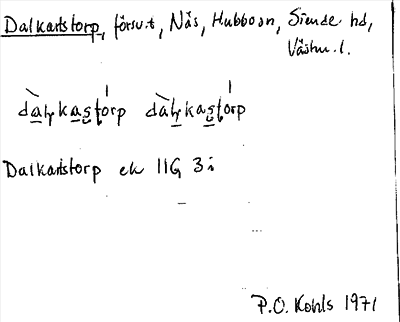 Dalkarlstorp, försv.t, Näs, Hubbo sn, Siende hd,
Västm. l.
dàḷkaṣtórp dàḷkaṣtórp
Dalkarlstorp ek 11G 3i
P.O. Kohls 1971